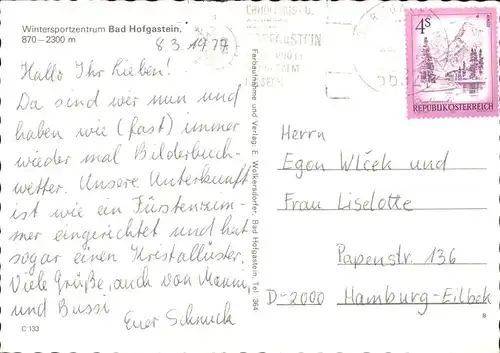 Wintersportzentrum Bad Hofgastein,
870–2300 m
8 3. 1977
Hallo Ihr Lieben!
Da sind wir nun und
haben wie (fast) immer
wieder mal Bilderbuch-
wetter. Unsere Unterkunft
ist wie ein Fürstenzim-
mer eingerichtet und hat
sogar einen Kristallüster.
Viele Grüße, auch von
und Bussi
Euer
C 133
Farbaufnahme und Verlag: E. Wolkersdorfer, Bad Hofgastein, Tel. 364
4S
REPUBLIK ÖSTERREICH
Herrn
Egon Wlček und
Frau Liselotte
Papenstr. 136
D-2000 Hamburg-Eilbek
8